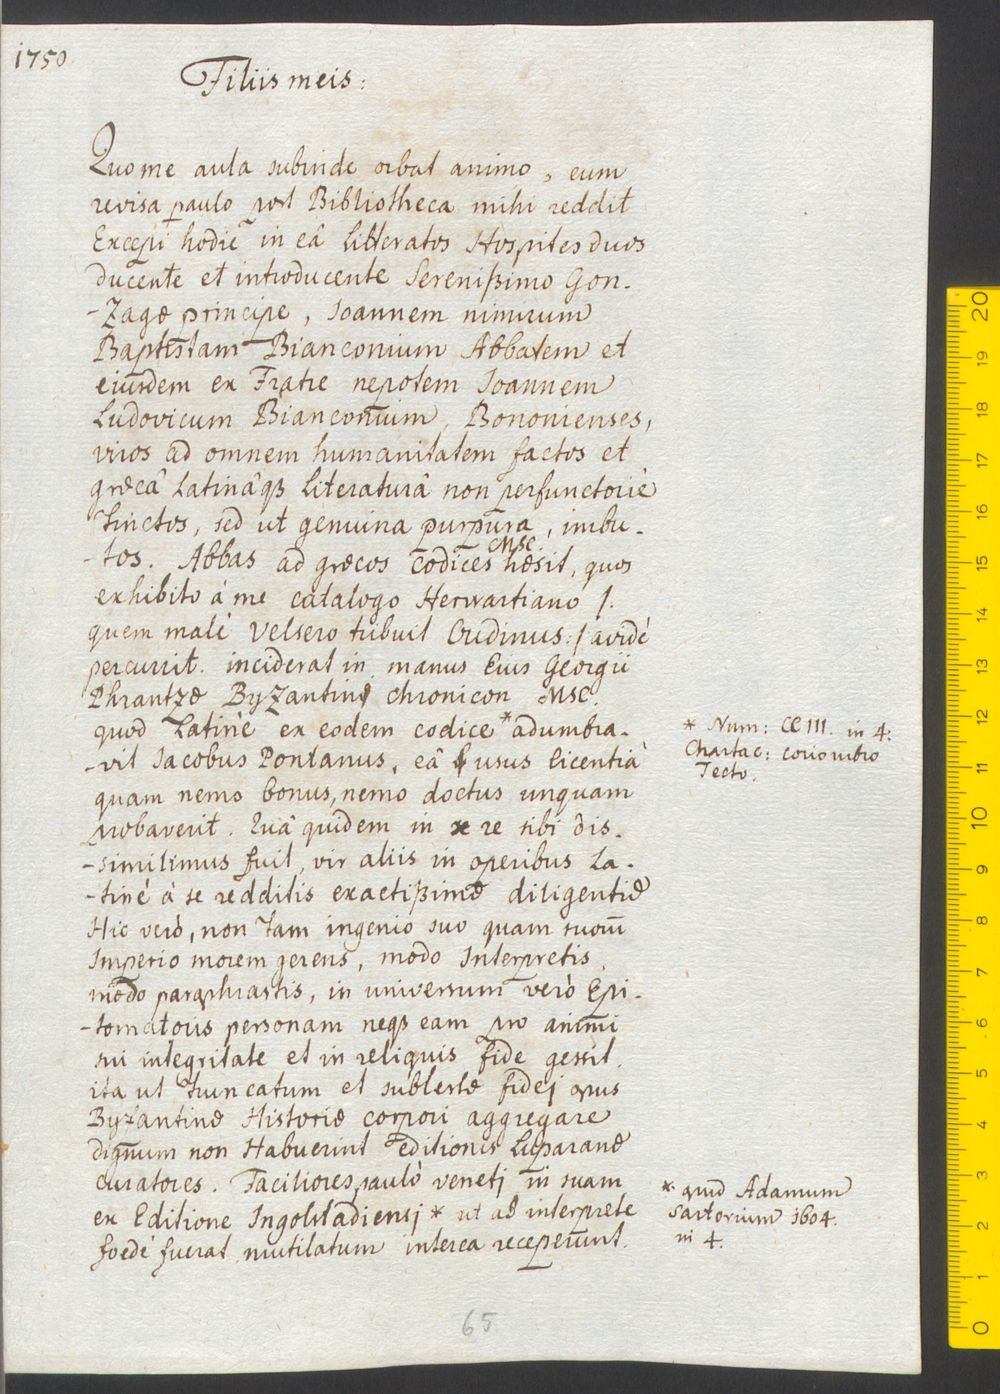 1750
Filiis meis:
Quo me aula subinde orbat animo, eum
revisa paulo post Bibliotheca mihi reddit
Excepi hodie in eâ litteratos Hospites duos
ducente et introducente Serenißimo Gon-
-zagæ principe, Joannem nimirum
Baptistam Bianconium Abbatem et
eiusdem ex Fratre nepotem Joannem
Ludovicum Bianconium, Bononienses,
viros ad omnem humanitatem factos et
græcâ Latinâqȝ literaturâ non perfunctoriè
tinctos, sed ut genuina purpura, imbu-
-tos. Abbas ad græcos codices MSC. hæsit, quos
exhibito á me catalogo Herwartiano /:
quem malè Velsero tribuit Oudinus:/ avidè
percurrit. inciderat in manus Eius Georgii
Phrantzæ Byzantini chronicon MSC.
quod Latinè ex eodem codice * adumbra-
-vit Jacobus Pontanus, eâ usus licentiâ
quam nemo bonus, nemo doctus unquam
probaverit. Quâ quidem in re sibi dis-
-similimus fuit, vir aliis in operibus La-
-tinè à se redditis exactißimæ diligentiæ
Hic verò, non tam ingenio suo quam suorū
Imperio morem gerens, modo Interpretis,
modo paraphrastis, in universum verò Epi-
-tomatoris personam neqȝ eam pro animi
sui integritate et in reliquis fide gessit.
ita ut truncatum et sublestæ fidej opus
Byzantinæ Historiæ corpori aggregare
dignum non Habuerint editionis Luparanæ
curatores. Faciliores paulò venetj in suam
ex Editione Ingolstadiensj * ut ab interprete
foedè fuerat mutilatum interea receperunt.
* Num: CCIII. in 4:
Chartac: corio rubro
Tecto.
* apud Adamum
Sartorium 1604.
in 4.
65
0 1 2 3 4 5 6 7 8 9 10 11 12 13 14 15 16 17 18 19 20